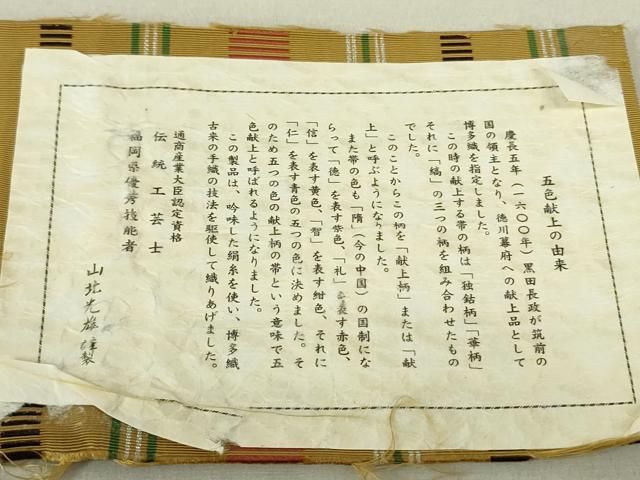 五色献上の由来
慶長五年（一六〇〇年）黒田長政が筑前の
国の領主となり、徳川幕府への献上品として
博多織を指定しました。
この時の献上する帯の柄は「独鈷柄」「華柄」
それに「縞」の三つの柄を組み合わせたもの
でした。
このことからこの柄を「献上柄」または「献
上」と呼ぶようになりました。
また帯の色も「隋」（今の中国）の国制にな
らって「徳」を表す紫色、「礼」を表す赤色、
「信」を表す黄色、「智」を表す紺色、それに
「仁」を表す青色の五つの色に決めました。そ
のため五つの色の献上柄の帯という意味で五
色献上と呼ばれるようになりました。
この製品は、吟味した絹糸を使い、博多織
古来の手織の技法を駆使して織りあげました。
通商産業大臣認定資格
伝統工芸士
福岡県優秀技能者
山北光雄謹製